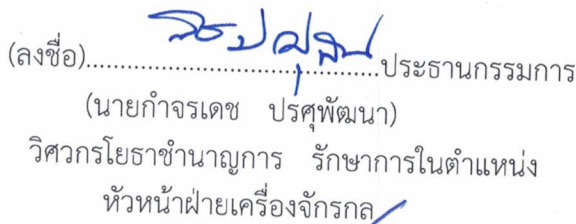 (ลงชื่อ)................................ประธานกรรมการ
(นายกำจรเดช ปรศุพัฒนา)
วิศวกรโยธาชำนาญการ รักษาการในตำแหน่ง
หัวหน้าฝ่ายเครื่องจักรกล